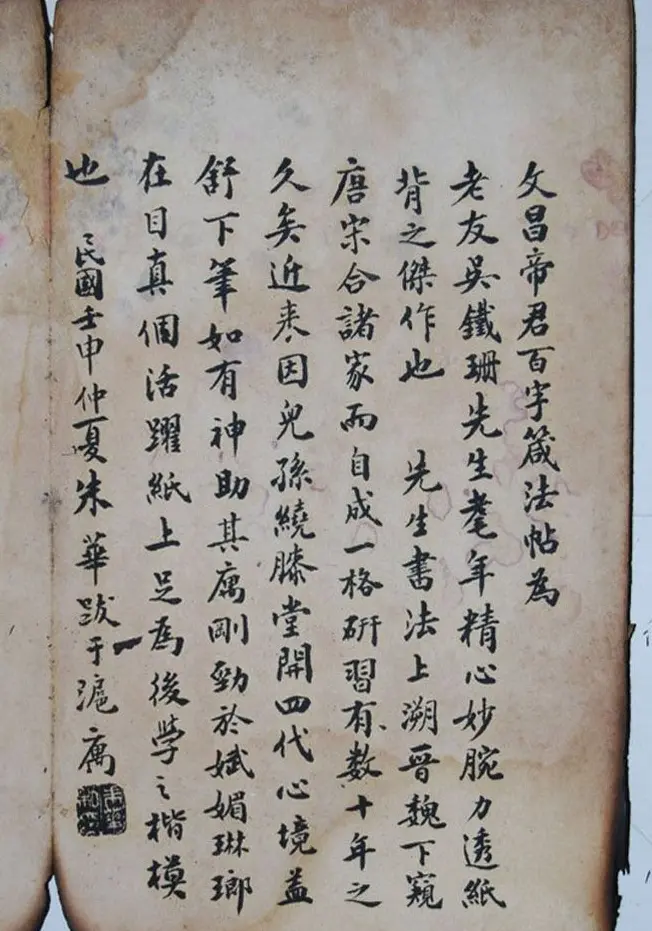 文昌帝君百字箴法帖為
老友吳鐵珊先生耄年精心妙腕力透紙
背之傑作也 先生書法上溯晉魏下窺
唐宋合諸家而自成一格研習有數十年之
久矣近来因兒孫繞膝堂開四代心境益
舒下筆如有神助其寓剛勁於娬媚琳瑯
在目真個活躍紙上足為後學之楷模
也 民國壬申仲夏朱華跋于滬寓